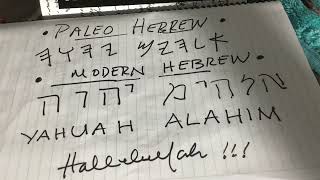 • PALEO HEBREW •
𐤉𐤄𐤅𐤄 𐤀𐤋𐤄𐤉𐤌
• MODERN HEBREW •
יהוה אלהימ
YAHUAH ALAHIM
Halleluyah !!!